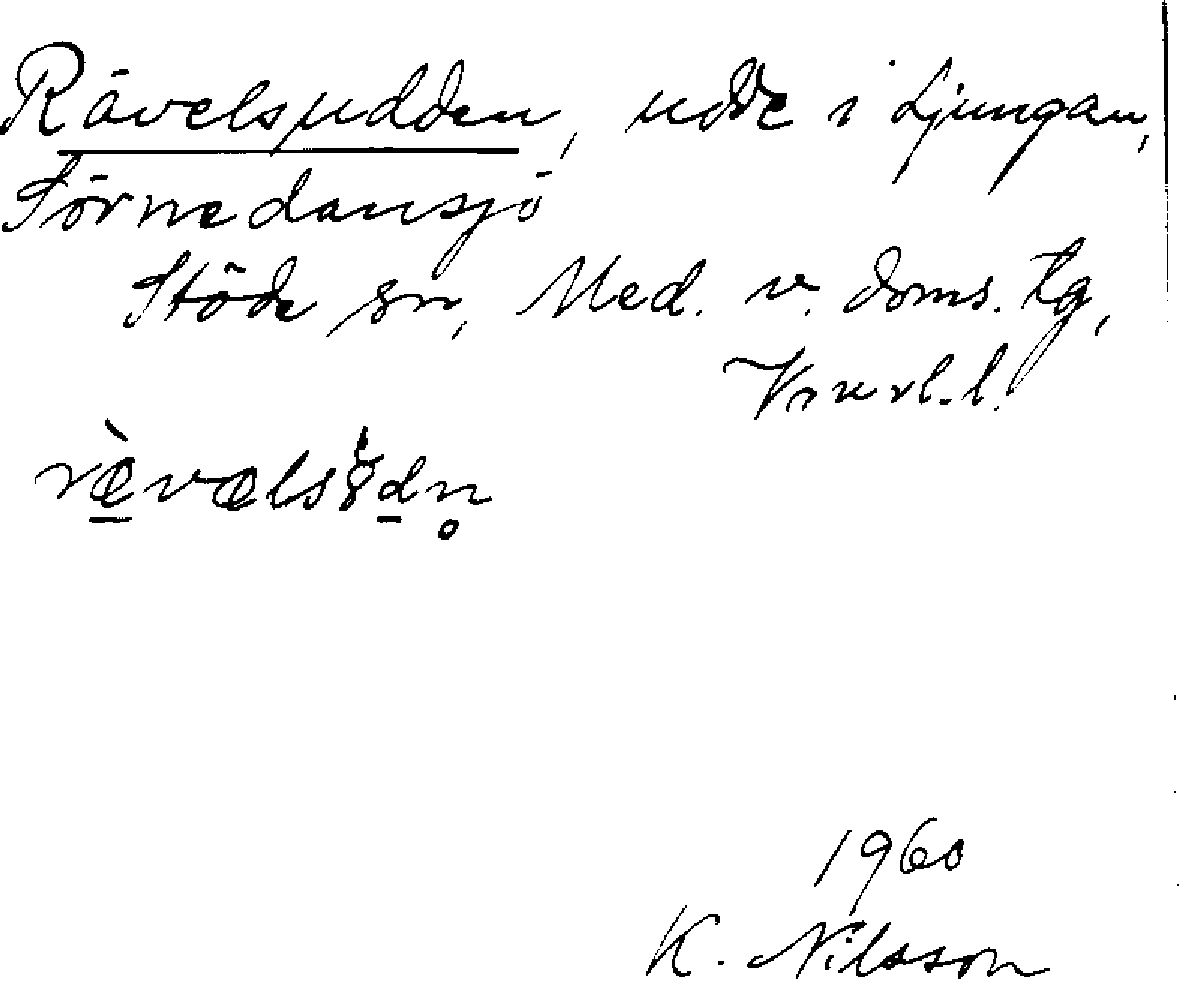 Rävelsudden, udde i Ljungan,
Törnedansjö
Stöde sn, Med. v. doms. tg,
Vnrl. l.
ræ̠̀vælsꞌ8d̠n̥
1960
K. Nilsson